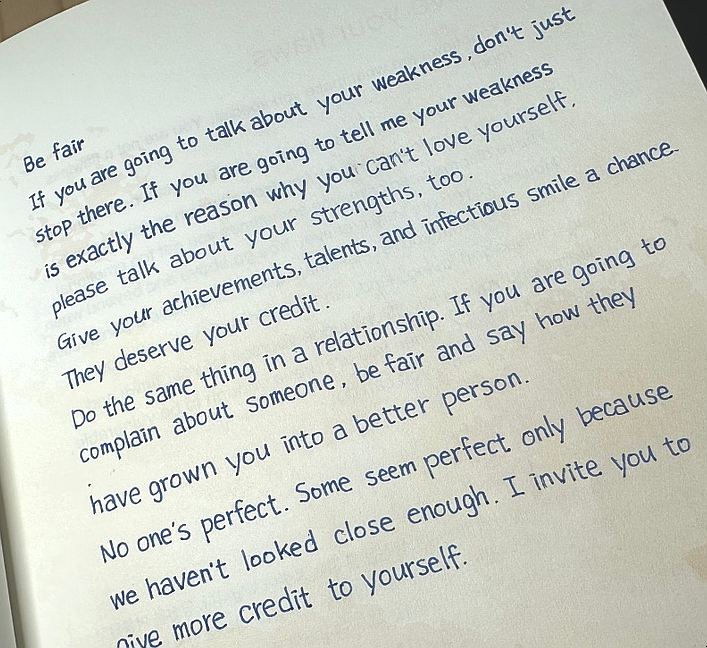 Be fair
If you are going to talk about your weakness, don't just
stop there. If you are going to tell me your weakness
is exactly the reason why you can't love yourself,
please talk about your strengths, too.
Give your achievements, talents, and infectious smile a chance.
They deserve your credit.
Do the same thing in a relationship. If you are going to
complain about someone, be fair and say how they
have grown you into a better person.
No one's perfect. Some seem perfect only because
we haven't looked close enough. I invite you to
give more credit to yourself.